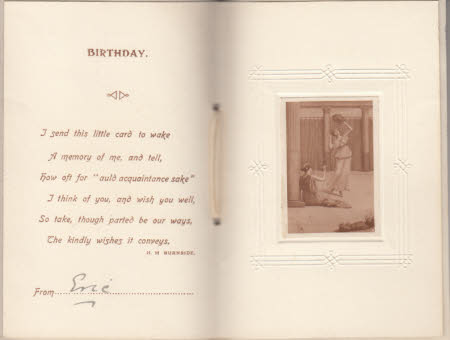 BIRTHDAY.
I send this little card to wake
A memory of me, and tell,
How oft for "auld acquaintance sake"
I think of you, and wish you well,
So take, though parted be our ways,
The kindly wishes it conveys.
H. M BURNSIDE.
From Eric